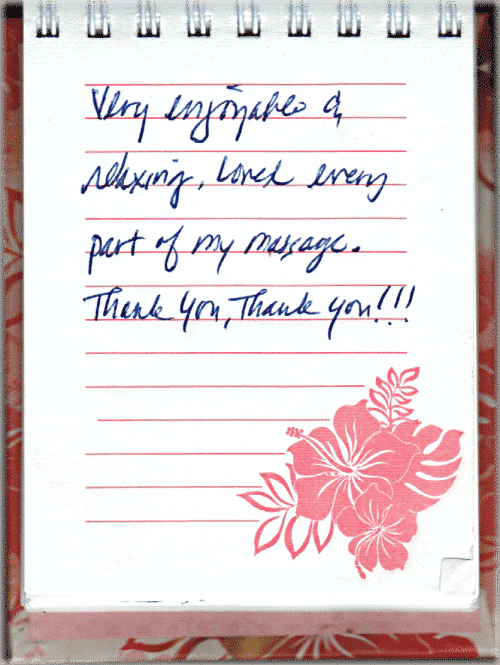 Very enjoyable &
relaxing, Loved every
part of my massage.
Thank you, Thank you!!!